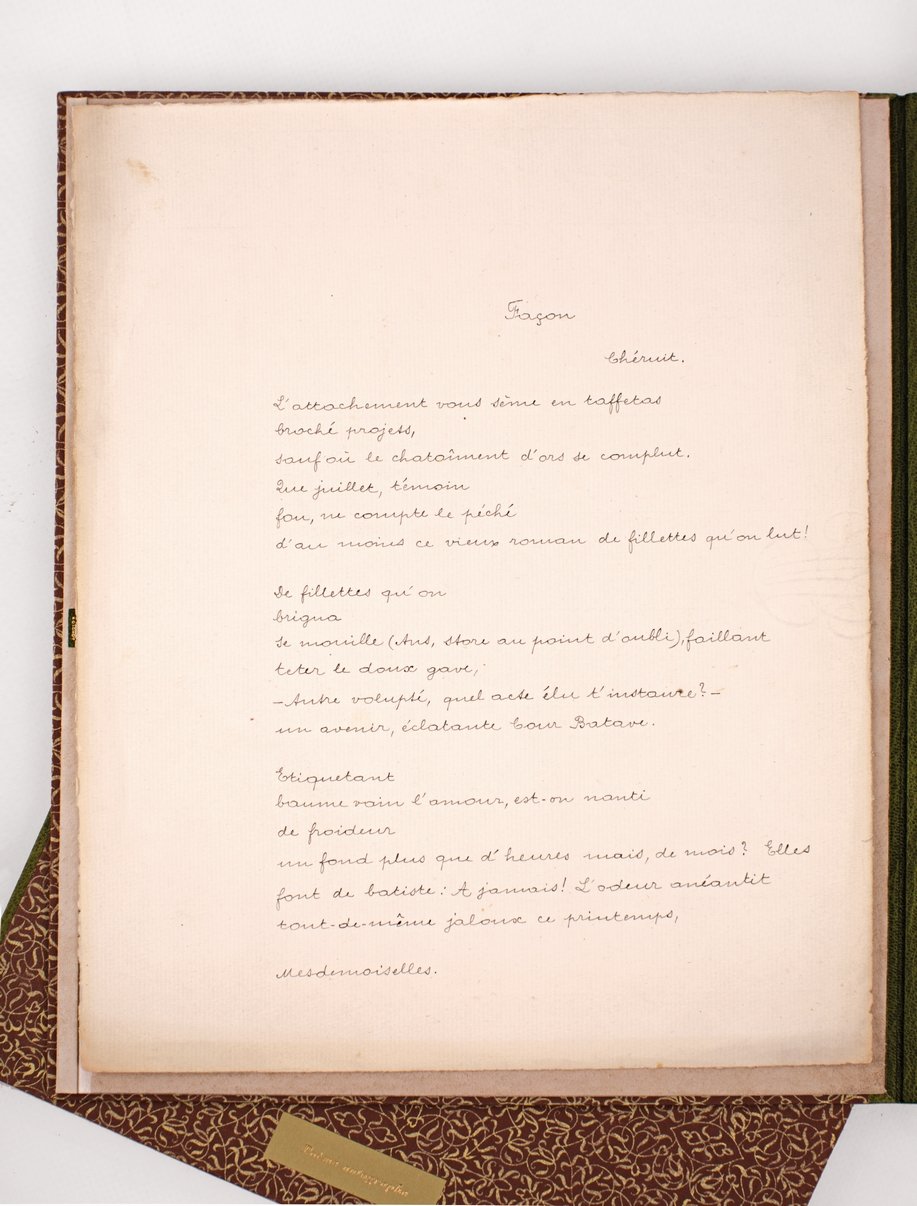 Façon
Chéruit.
L'attachement vous sème en taffetas
broché projets,
sauf où le chatoîment d'ors se complut.
Que juillet, témoin
fou, ne compte le péché
d'au moins ce vieux roman de fillettes qu'on lut!
De fillettes qu'on
brigua
se mouille (Ans, store au point d'oubli), faillant
téter le doux gave,
—Autre volupté, quel acte élu t'instaure?—
un avenir, éclatante Cour Batave.
Etiquetant
baume vain l'amour, est-on nanti
de froideur
un fond plus que d'heures mais, de mois? Elles
font de batiste: A jamais! L'odeur anéantit
tout-de-même jaloux ce printemps,
Mesdemoiselles.